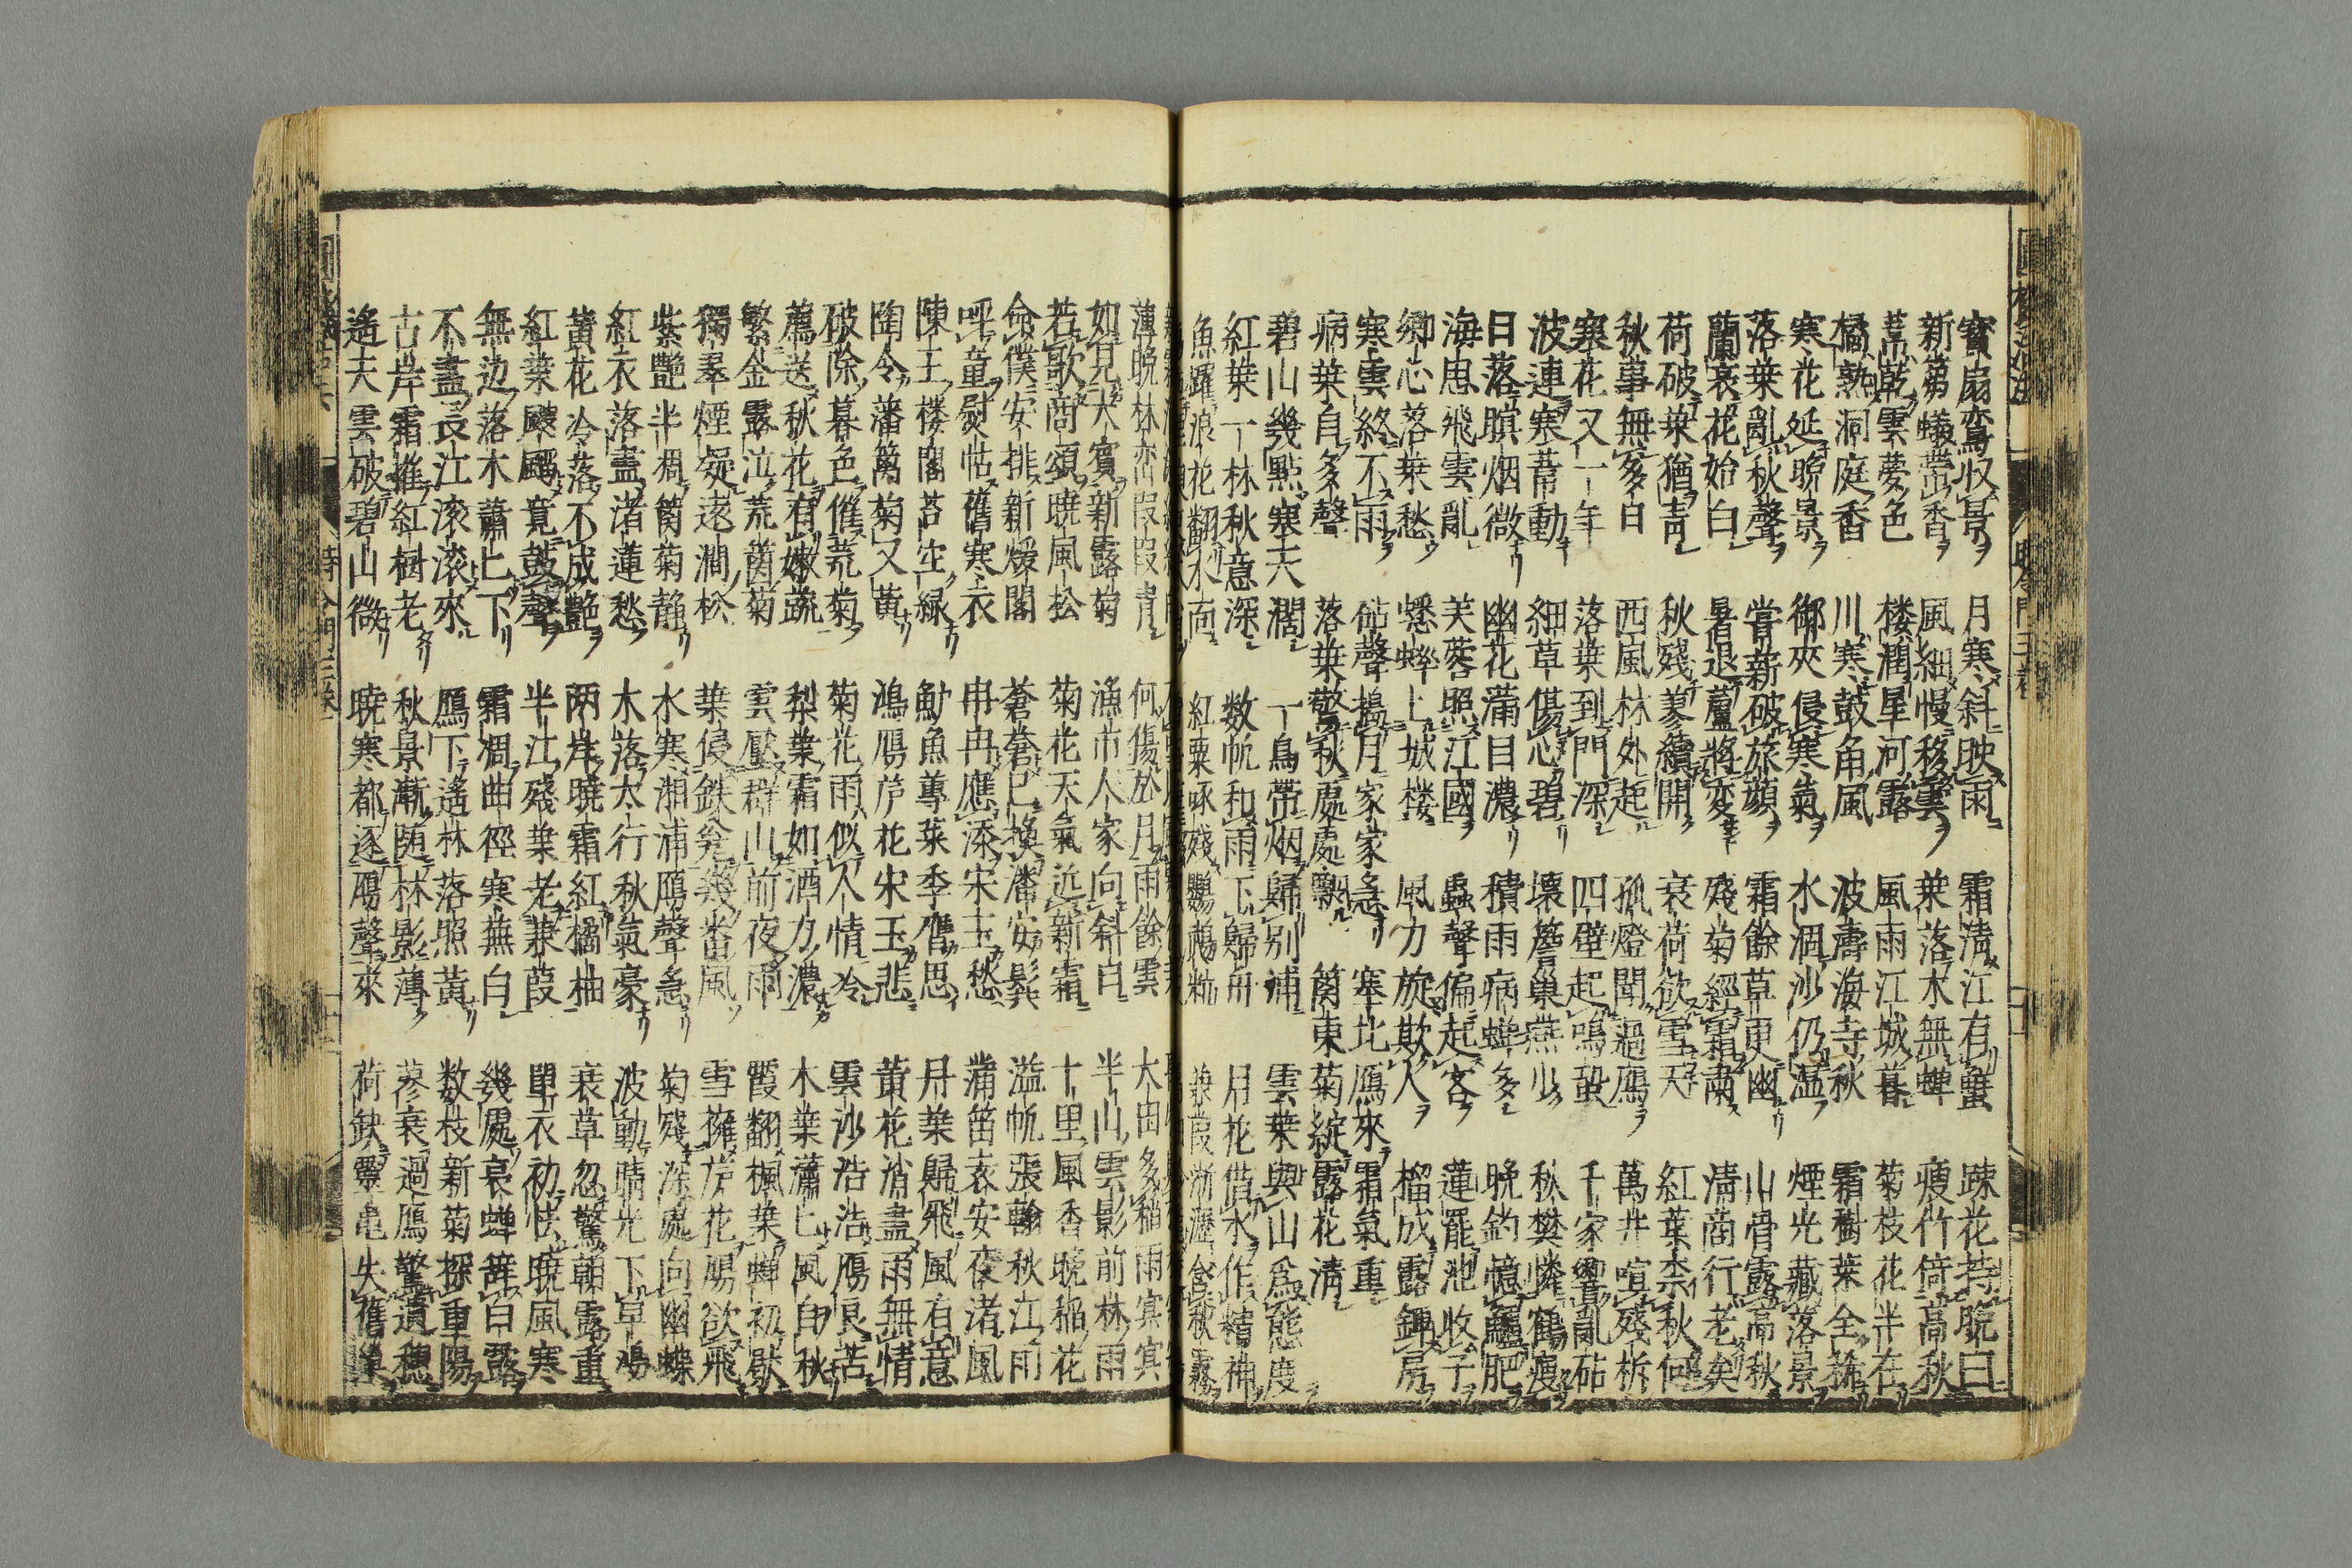 寶扇鸞収景 月寒斜映雨 霜清江有蟹 踈花持晩日
新蒭蟻帶香 風細慢移雲 葉落木無蟬 痩竹倚高秋
葦乾雲夢色 楼濶星河露 風雨江城暮 菊枝花半在
橘熟洞庭香 川寒鼓角風 波濤海寺秋 霜樹葉全
寒花延晩景 御夾侵寒氣 水涸沙仍温 煙光藏落景
落葉亂秋聲 嘗新破旅顔 霜餘草更幽 山骨露高秋
蘭衰花始白 暑退蘆將変 殘菊經霜肅 清商行老矣
荷破葉猶青 秋殘蓼續開 衰荷欲雪天 紅葉柰秋何
秋事無多日 西風林外起 孤燈聞過鴈 萬井喧殘柝
寒花又一年 落葉到門深 四壁起鳴蛩 千家響亂砧
波連寒葦動 細草傷心碧 壞簷巢燕少 秋樊憐鶴痩
日落臏烟微 幽花滿目濃 積雨病蟬多 晩釣憶鱸肥
海思飛雲亂 芙蓉照江國 蟲聲偏起客 蓮罷池收子
郷心落葉愁 蟋蟀上城楼 風力旋欺人 榴成露鋪房
寒雲終不雨 砧聲搗月家家急 塞北鴈來霜氣重
病葉自多聲 落葉驚秋處處飄 籬東菊綻露花清
碧山幾點寒天濶 一鳥帶烟歸別浦 雲葉與山爲態度
紅葉一林秋意深 数帆和雨下歸舟 月花借水作精神
魚躍浪花翻水面 紅粟啄殘鸚鵡粒 蒹葭淅瀝含秋霧
薄晩林巒叚叚青 何傷於月雨餘雲 大田多稲雨冥冥
如見大賓新露菊 漁市人家向斜日 半山雲影前林雨
若歌商頌曉風松 菊花天氣近新霜 十里風香晩稲花
命僕安排新煖閣 蒼蒼已換潘安髩 溢帆張翰秋江雨
呼童熨帖舊寒衣 冉冉應添宋玉愁 蒲笛袁安夜渚風
陳王楼閣苔空緑 魛魚蓴菜季膺思 丹葉歸飛風有意
陶令藩籬菊又黃 鴻鴈芦花宋玉悲 黃花消盡雨無情
破除暮色催荒菊 菊花雨似人情冷 雲沙浩浩鴈良苦
薦送秋花有嫩蔬 梨葉霜如酒力濃 木葉瀟〻風自秋
繁金露泣荒菌菊 雲壓群山前夜雨 霞翻楓葉蟬初歇
獨翠煙凝遠澗松 葉侵鉄𠔃幾畨風 雪擁芦花鴈欲飛
紫艷半凋籬菊静 水寒湘浦鴈聲急 菊殘深處向幽蝶
紅衣落盡渚蓮愁 木落太行秋氣豪 波動晴光下草鳬
黃花冷落不成艶 兩岸曉霜紅橘柚 衰草忽驚朝露重
紅葉颼飀竟鼓聲 半江殘葉老蒹葭 單衣初怯曉風寒
無边落木蕭〻下 霜凋曲徑寒蕪白 幾處哀蟬薢白露
不盡長江滾滾來 鴈下遙林落照黃 数枝新菊探重陽
古岸霜摧紅樹老 秋景漸随林影薄 蓼衰過鴈驚遺穂
遙天雲破碧山微 曉寒都逐鴈聲來 荷鈌靈亀失舊巣